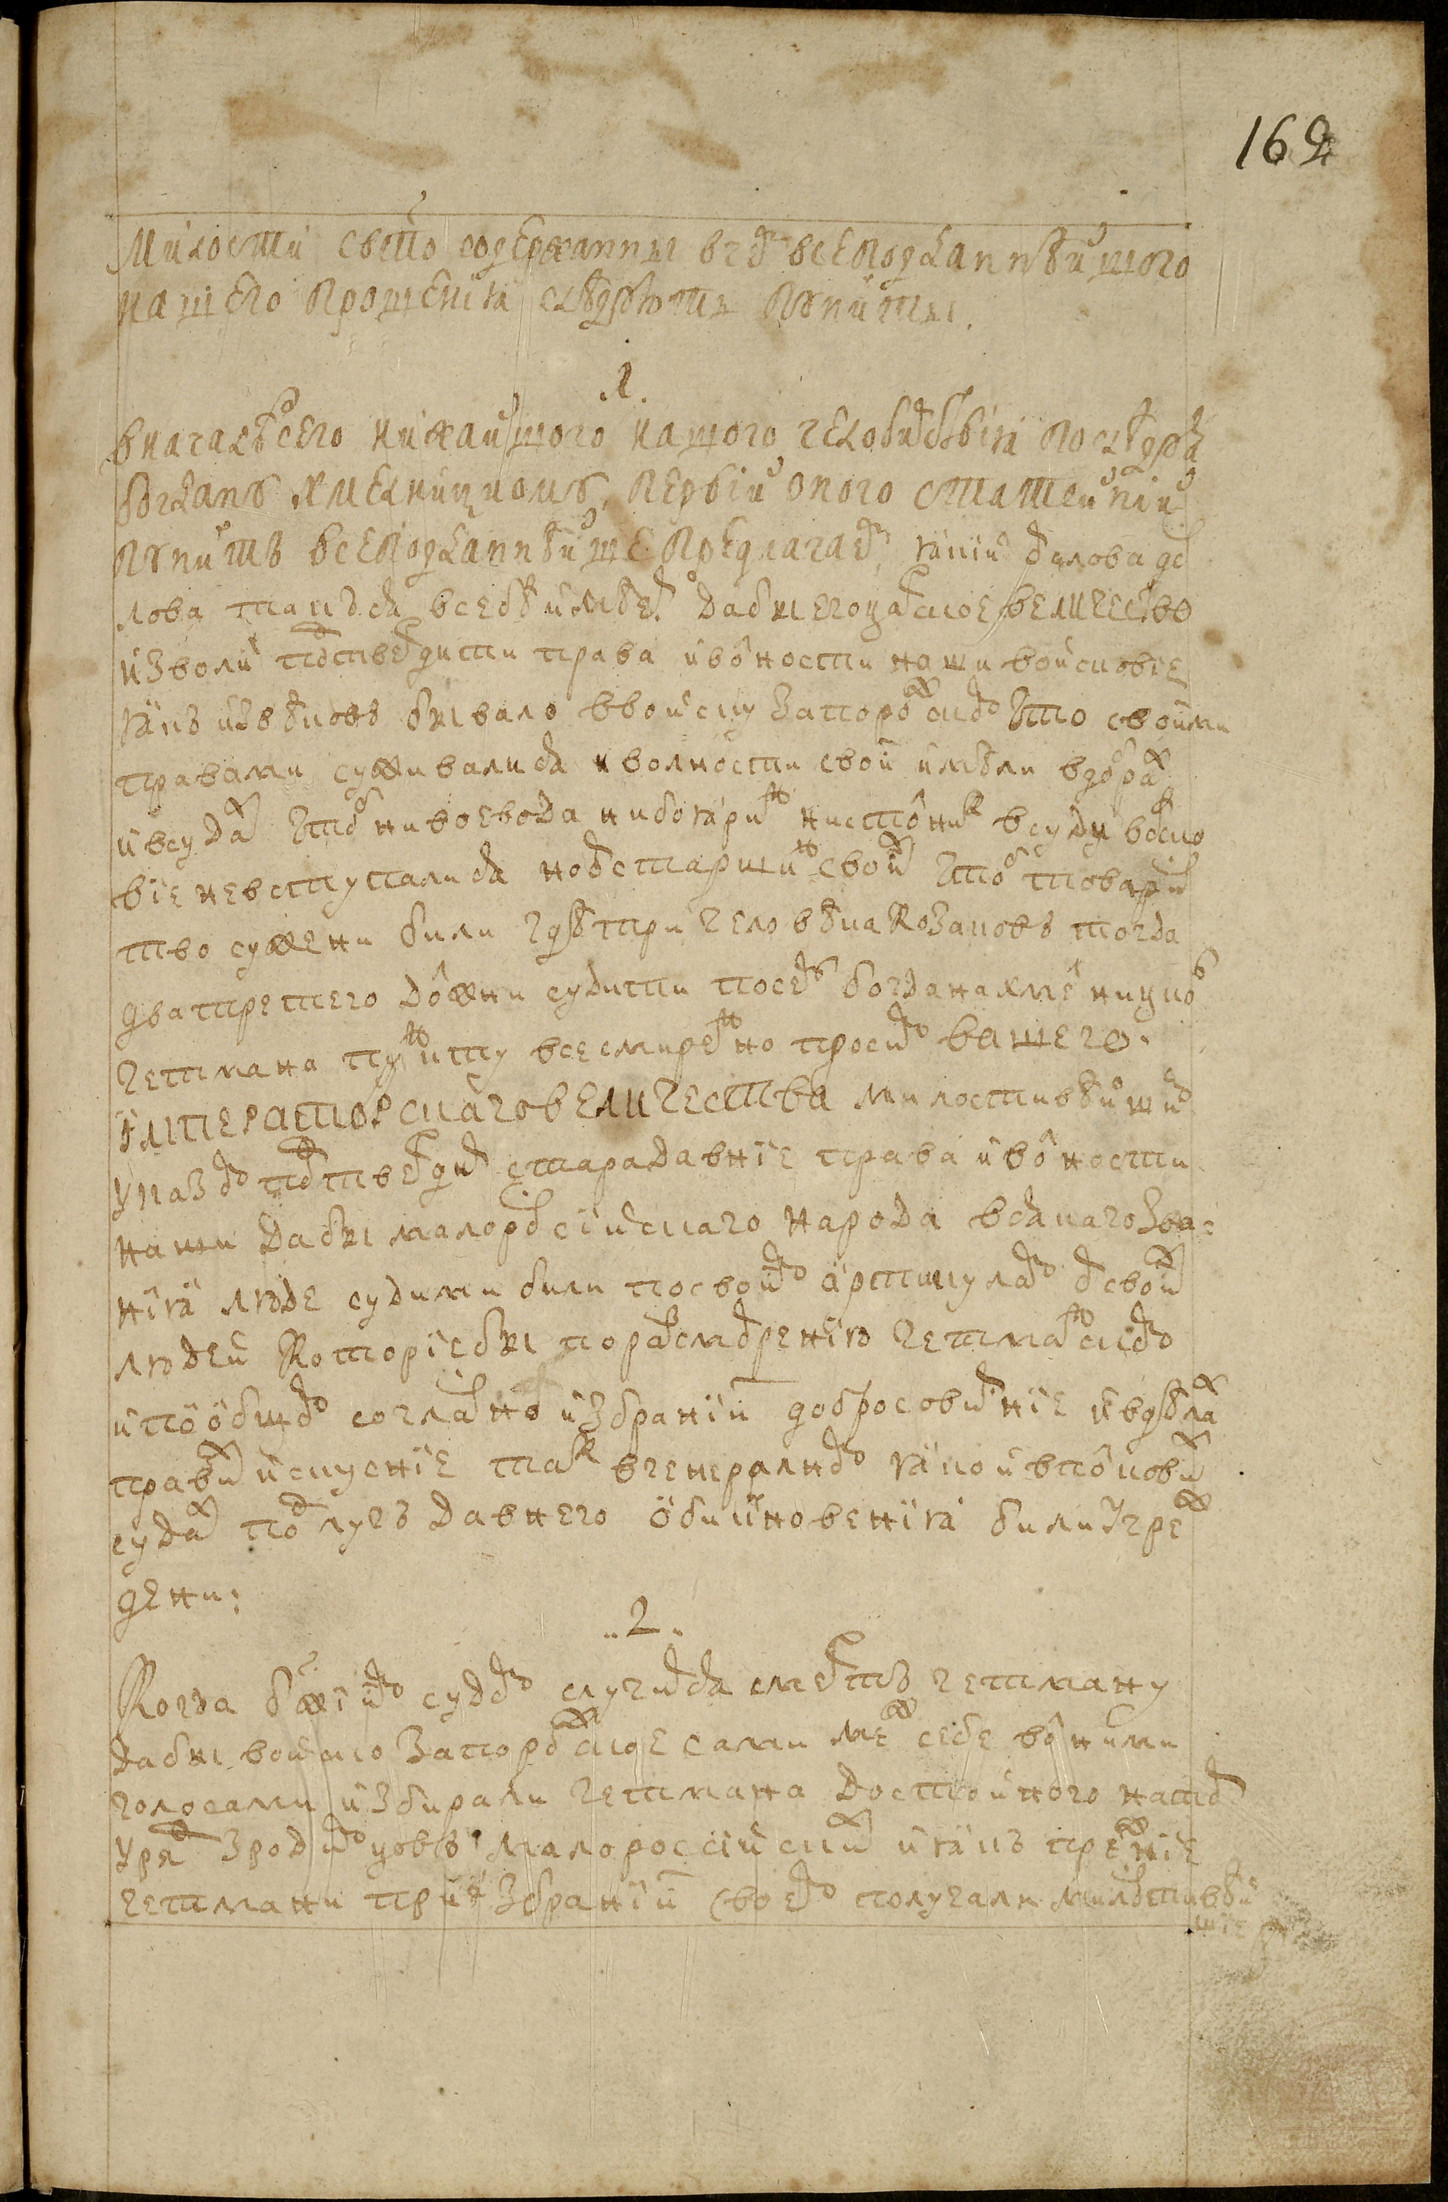 162
Милости свято содержанны в чем всеподданнѣйшого
нашего прошения слѣдуютъ пункты.
.1.
Вначалѣ сего нижайшого нашого челобитствія послѣдуя
Богдану Хмелницкому, первій оного статейній
пунктъ всеподданнѣйше предлагаем, якій слово в сло
лова такъ ся в себѣ имѣет. Дабы его царское величество
изволил потвердити права и волности наши войсковіе
якъ изъ вѣковъ бывало в войску Запорожском што своими
правами суживалися и волности свои имѣли в добрах
и в судах штоб ни воевода ни бояринъ ни столник в суди войско
віе не вступалися но от старшинъ своих штоб товарис
тво сужени били гдѣ три человѣка козаковъ тогда
два третего должни судити по сему Богдана Хмелницкого
гетмана пункту всесмиренно просим вашего
Императорскаго величества милостивѣйшим
указом потвердит стародавніе права и волности
наши дабы малороссійскаго народа всякаго зва-
нія люде судими били по своим артикулам от своих
людей которіе бы по разсмотренію гетманском
и по общом согласно избраніи добросовѣстніе и в дѣлах
правних искусніе так в генералном яко и в полкових
судах подлугъ давнего обикновенія били учреж
дени:
..2..
Когда б Божіим судом случится смерть гетману
дабы войско Запорожское сами меж себе волними
голосами избирали гетмана достойного на тот
уряд з родимцовъ малороссійских и якъ прежніе
гетмани при избраніи своем получали милостивѣй
шіе